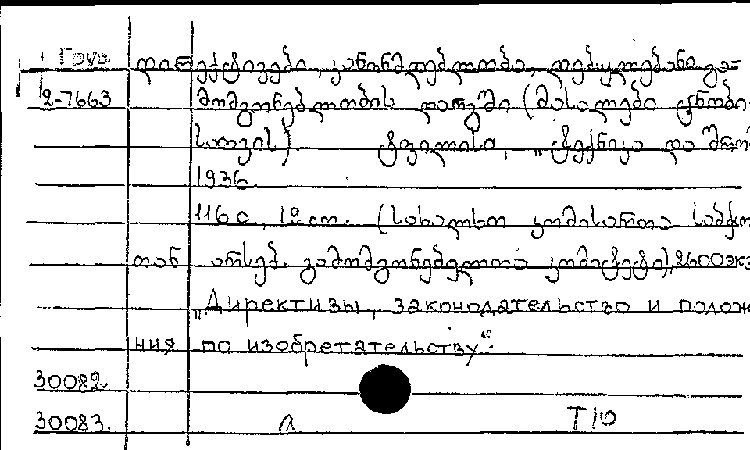 Груз. დირექტივები, კანონმდებლობა, დებულებანი გა-
2-7663 მომგონებლობის დარგში (მასალები ცნობი
სათვის). ტფილისი, „ტექნიკა და შრო
1936.
116 с., 12 см. (სახალხო კომისართა საბჭო
თან არსებ. გამომგონებელთა კომიტეტი), 2600 экз
„Директивы, законодательство и полож
ния по изобретательству“.
30082.
30083. а Т/О